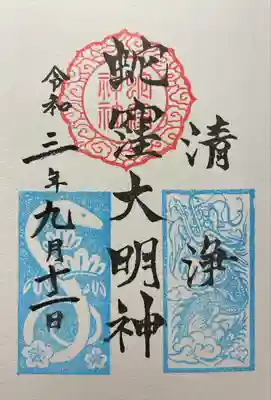 清浄
蛇窪大明神
令和三年九月十二日